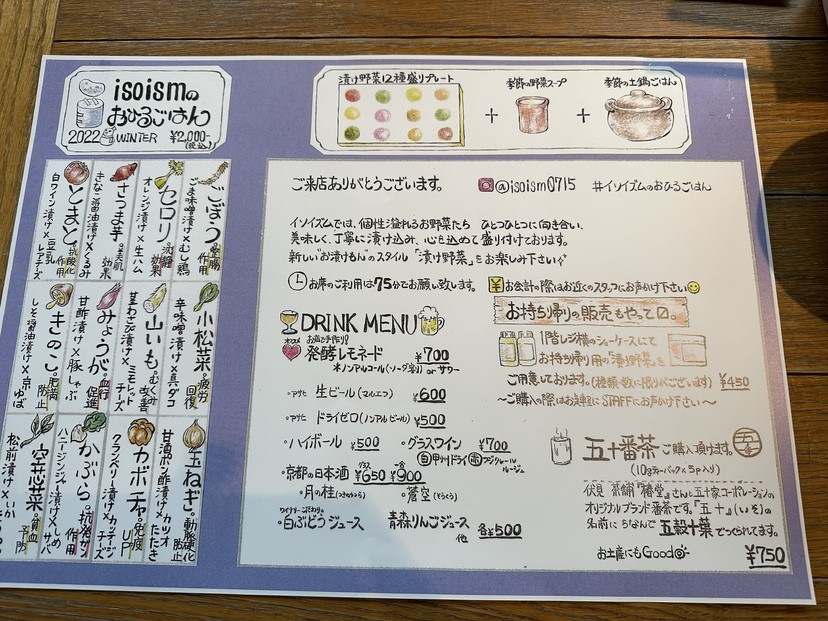 isoismの
おひるごはん
2022 WINTER ¥2,000-
(税込)
漬け野菜12種盛りプレート
+
季節の野菜スープ
+
季節の土鍋ごはん
ごぼう。整腸作用
ごま味噌漬け×むし鶏
セロリ。沈静効果
オレンジ漬け×生ハム
さつま芋。美肌効果
きなこ醤油漬け×くるみ
とまと。抗酸化作用
白ワイン漬け×豆乳レアチーズ
小松菜。疲労回復
辛味噌漬け×真ダコ
山いも。むくみ改善
茎わさび漬け×ミモレットチーズ
みょうが。血行促進
甘酢漬け×豚しゃぶ
きのこ。肥満防止
しそ醤油漬け×京ゆば
玉ねぎ。動脈硬化防止
甘酒ポン酢漬け×カツオたたき
カボチャ。免疫UP
クランベリー漬け×カッテージチーズ
かぶら。抗発ガン作用
ハニージンジャー漬け×しめサバ
空芯菜。貧血予防
松前漬け×いか
ご来店ありがとうございます。
@isoism0715 #イソイズムのおひるごはん
イソイズムでは、個性溢れるお野菜たち ひとつひとつに向き合い、
美味しく、丁寧に漬け込み、心を込めて盛り付けております。
新しい"お漬けもん"のスタイル「漬け野菜」をお楽しみ下さい
お席のご利用は75分でお願い致します。
¥お会計の際はお近くのスタッフにお声かけ下さい
DRINK MENU
お店で手作り!
発酵レモネード ¥700
※ノンアルコール(ソーダ割り) or サワー
・アサヒ 生ビール ¥600
・アサヒ ドライゼロ(ノンアルビール) ¥500
・ハイボール ¥500
・グラスワイン ¥700
白 甲州ドライ 赤
ルージュ
・京都の日本酒 グラス ¥650 一合 ¥900
・月の桂(つきのかつら) ・蒼空(そうくう)
白ぶどうジュース 青森りんごジュース 他 各¥500
お持ち帰りの販売もやってロ。
1階レジ横のショーケースにて
お持ち帰り用の「漬け野菜」を
ご用意しております。(種類・数に限りがございます) ¥450
〜ご購入の際はお気軽にSTAFFにお声かけ下さい〜
五十番茶 ご購入頂けます。
(10gティーパック×5p入り)
伏見 茶舗『椿堂』さんと五十家コーポレーションの
オリジナルブランド番茶です。「五十」(いそ)の
名前にちなんで五穀十葉でつくられてます。
お土産にもGood
¥750